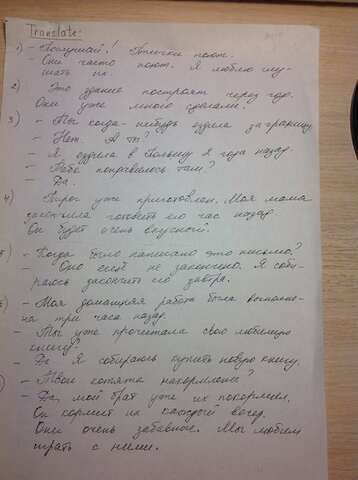 Translate:
1) - Послушай! Птички поют.
- Они часто поют. Я люблю слу-
шать их.
2) - Это здание построят через год.
Они уже много сделали.
3) - Ты когда-нибудь ездила за границу
- Нет. А ты?
- Я ездила в Польшу 2 года назад.
- Тебе понравилось там?
- Да.
4) Пирог уже приготовлен. Моя мама
закончила готовить его час назад
Он будет очень вкусный.
- Когда было написано это письмо?
- Оно ещё не закончено. Я соби-
раюсь закончить его завтра.
- Моя домашняя работа была выполне-
на три часа назад.
- Ты уже прочитала свою любимую
книгу?
- Да Я собираюсь купить новую книгу.
- Твои котята накормлены?
- Да, мой брат уже их покормил.
Он кормит их каждый вечер.
Они очень забавные. Мы любим
играть с ними.